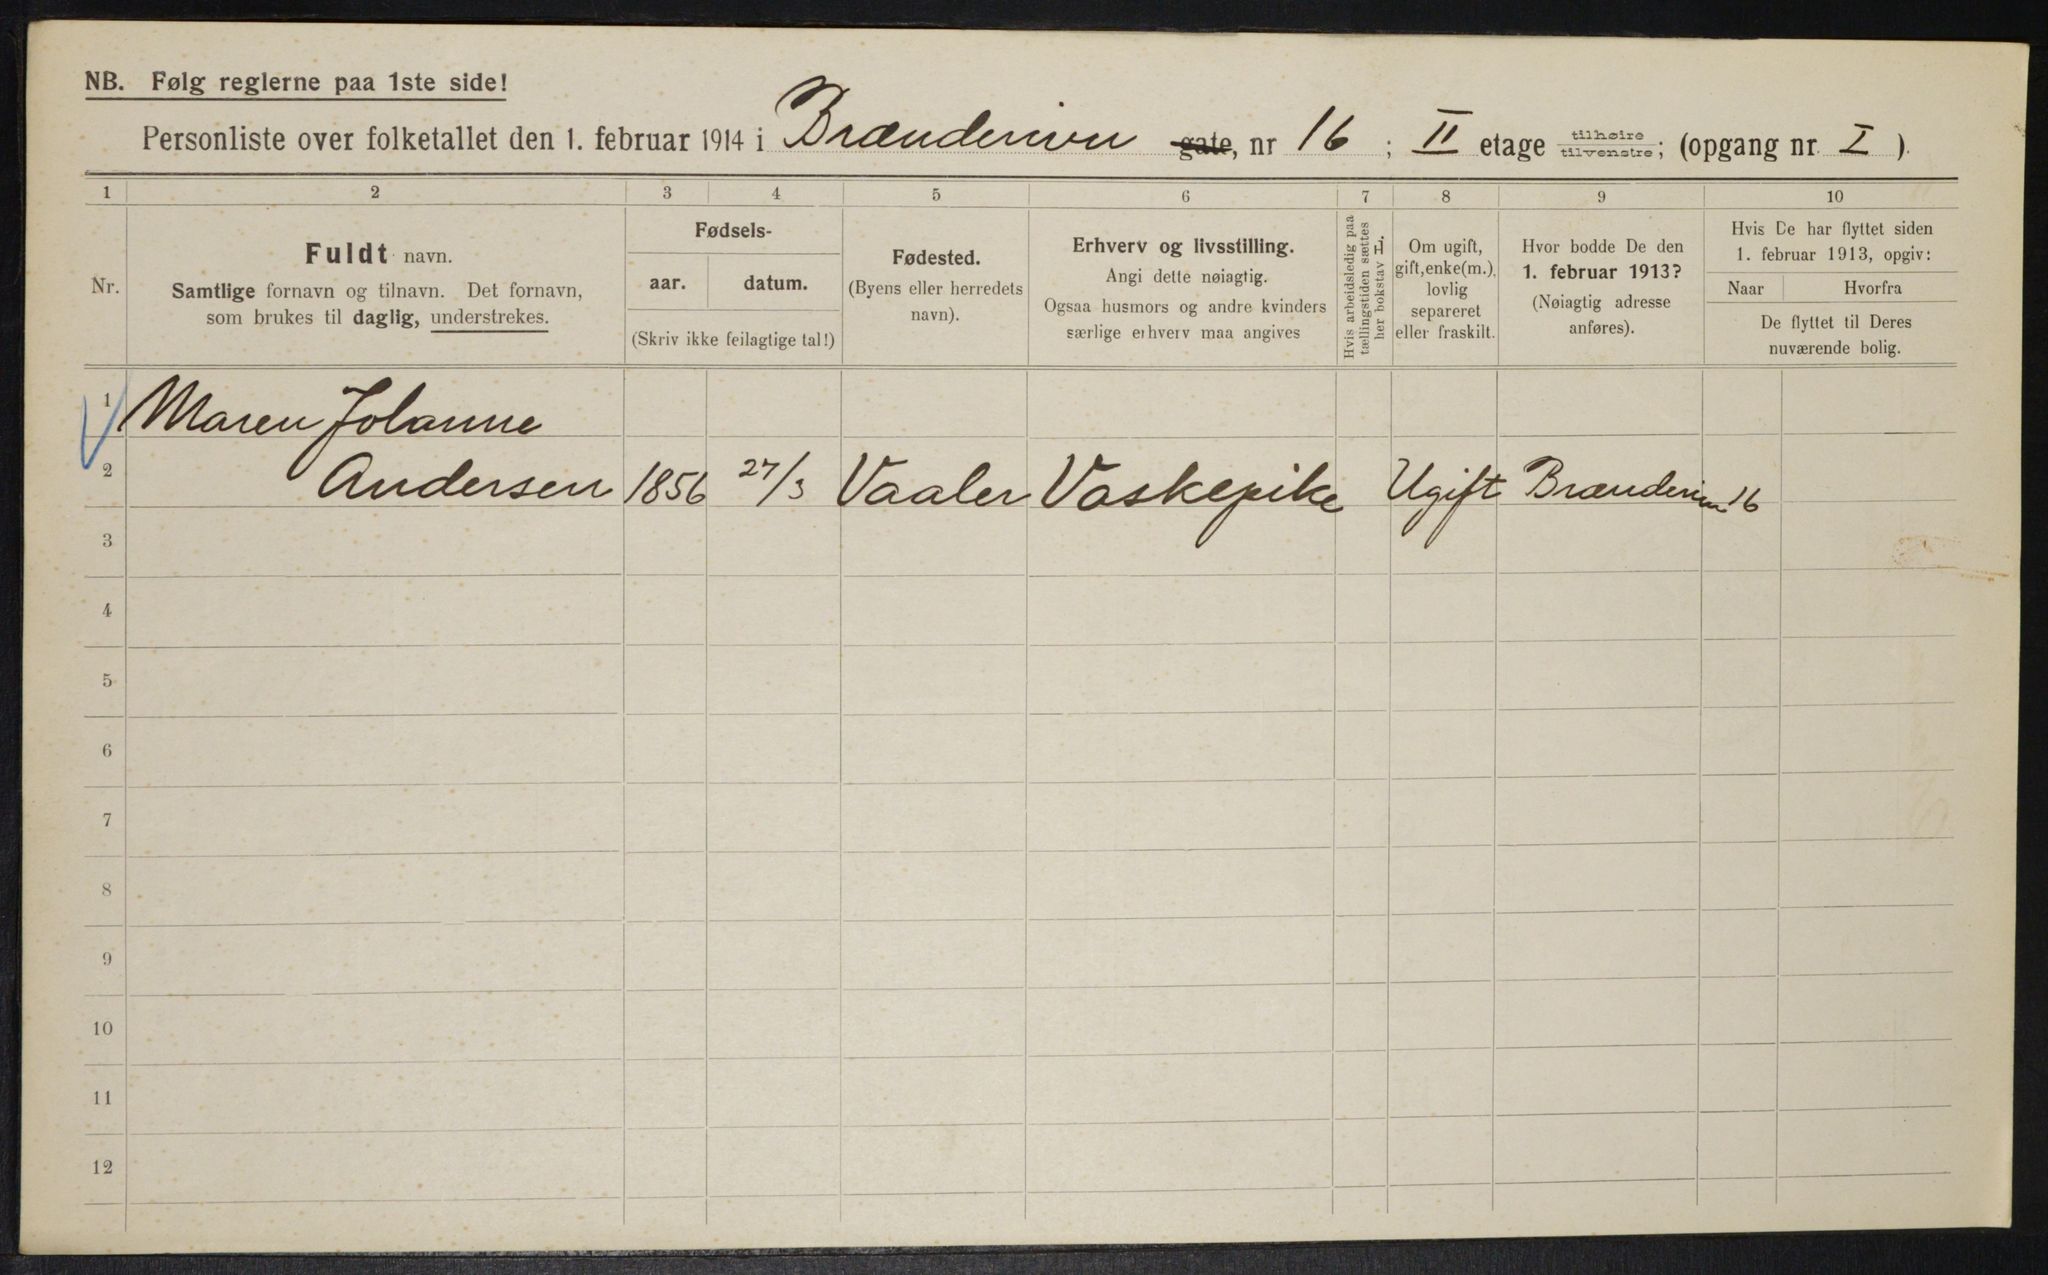 NB. Følg reglerne paa 1ste side!
Personliste over folketallet den 1. februar 1914 i Brænderiveien gate, nr 16 ; II etage tilhøire tilvenstre; (opgang nr. I ).
1 2 3 4 5 6 7 8 9 10
Nr.
Fuldt navn.
Samtlige fornavn og tilnavn. Det fornavn,
som brukes til daglig, understrekes.
Fødsels-
aar. datum.
(Skriv ikke feilagtige tal!)
Fødested.
(Byens eller herredets
navn).
Erhverv og livsstilling.
Angi dette nøiagtig.
Ogsaa husmors og andre kvinders
særlige erhverv maa angives
Hvis arbeidsledig paa
tællingstiden sættes
her bokstav H.
Om ugift,
gift, enke(m.),
lovlig
separeret
eller fraskilt.
Hvor bodde De den
1. februar 1913?
(Nøiagtig adresse
anføres).
Hvis De har flyttet siden
1. februar 1913, opgiv:
Naar Hvorfra
De flyttet til Deres
nuværende bolig.
1 Maren Johanne
2 Andersen 1856 27/3 Vaaler Vaskepike Ugift 16
3
4
5
6
7
8
9
10
11
12